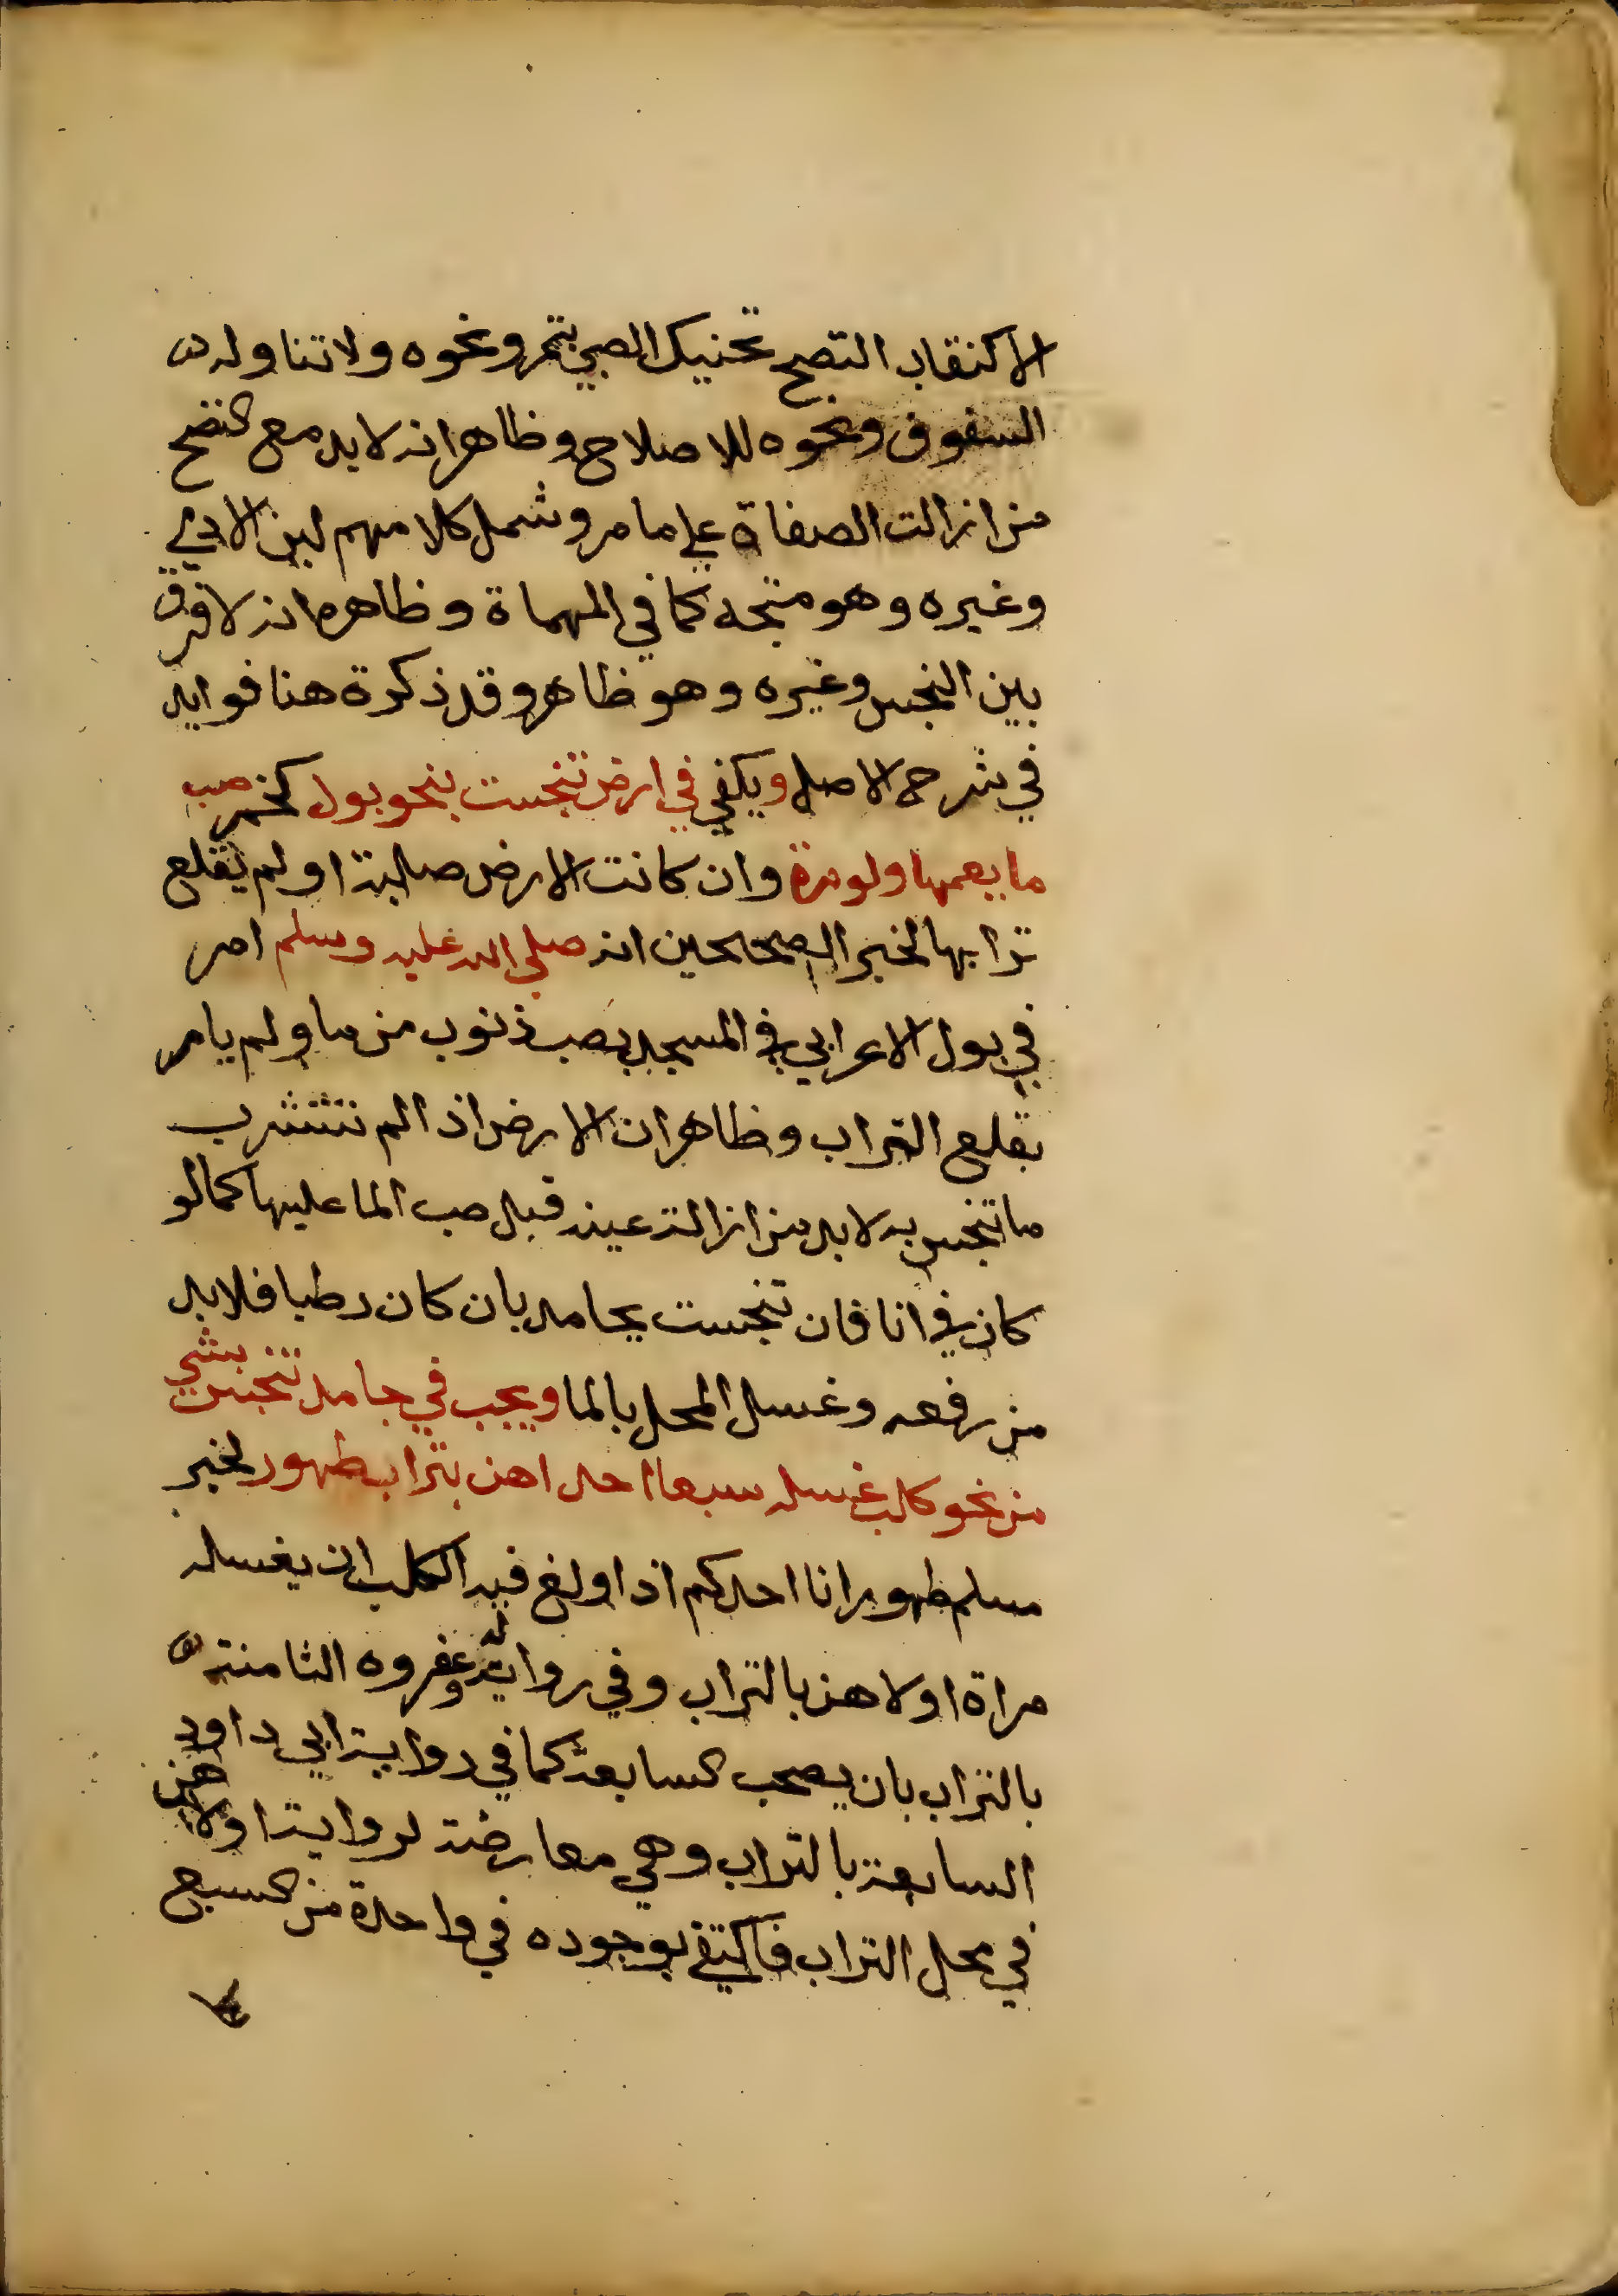 الاكنقاب التصح تحنيك الصبي بتمر ونحوه ولا تناوله
السفوف ونحوه للاصلاح وظاهر انه لا بد مع النضح
من ازالت الصفاة علي ما مر وشمل كلامهم لبن الادمي
وغيره وهو متجه كما في المهماة وظاهره انه لا فرق
بين النجس وغيره وهو ظاهر وقد ذكرة هنا فوايد
في شرح الاصل ويكفي في ارض تنجست بنحو بول كخمر صب
ما يعمها ولو مرة وان كانت الارض صلبة او لم يقلع
ترابها لخبر الصحيحين انه صلي الله عليه وسلم امر
في بول الاعرابي في المسجد بصب ذنوب من ما ولم يامر
بقلع التراب وظاهر ان الارض اذا لم تتشرب
ما تنجس به لا بد من ازالة عينه قبل صب الما عليها كما لو
كان في انا فان تنجست بجامد بان كان رطبا فلا بد
من رفعه وغسل المحل بالما ويجب في جامد تنجس بشي
من نحو كلب غسله سبعا احداهن بتراب طهور لخبر
مسلم طهور انا احدكم اذا ولغ فيه الكلب ان يغسله
مراة اولاهن بالتراب وفي رواية له وعفروه الثامنة
بالتراب بان يصحب السابعة كما في رواية ابي داود
السابعة بالتراب وهي معارضة لرواية اولاهن
في محل التراب فاكتفي بوجوده في واحدة من السبع